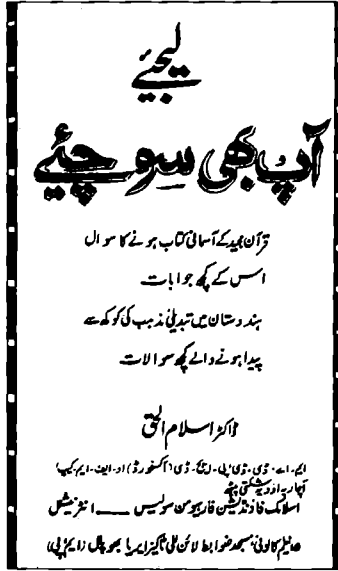 لیجئے
آپ بھی سوچئے
قرآن مجید کے آسمانی کتاب ہونے کا سوال
اس کے کچھ جوابات
ہندوستان میں تبدیلیٔ مذہب کی کوکھ سے
پیدا ہونے والے کچھ سوالات
ڈاکٹر اسلام الحق
ایم۔اے۔ڈی۔ڈی۔پی۔ایچ۔ڈی (آکسفورڈ) او۔ایف۔ایم۔کیپ
آچاریہ اور شکتی پیٹھ
اسلامک فاؤنڈیشن فار ہیومن سولیس —— انٹرنیشنل
کالونی، مسجد ضوابط لائن ٹاکیز ایریا بھوپال (ایم پی)